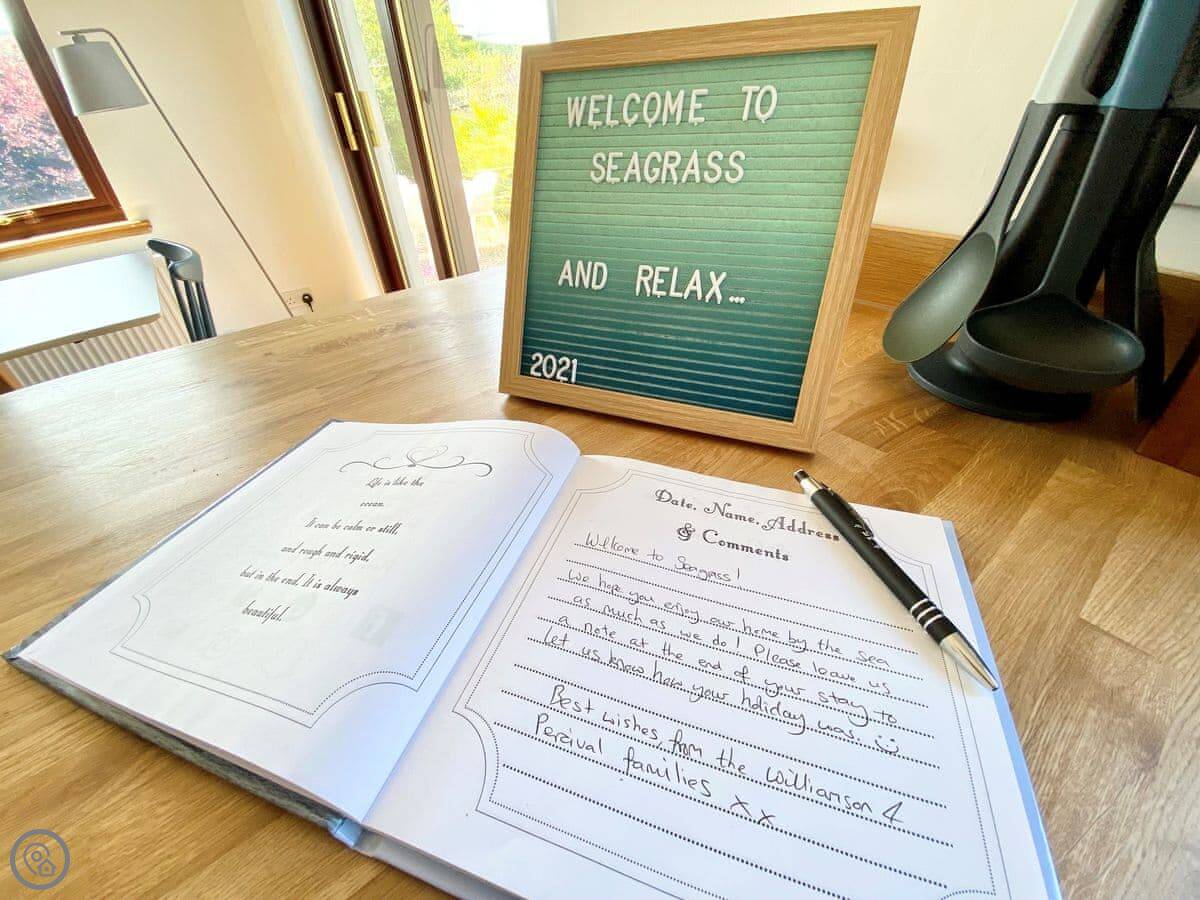 WELCOME TO
SEAGRASS
AND RELAX...
2021
Life is like the
ocean.
It can be calm or still,
and rough and rigid,
but in the end, It is always
beautiful.
Date, Name, Address
& Comments
Welcome to Seagrass!
We hope you enjoy our home by the sea
as much as we do! Please leave us
a note at the end of your stay to
let us know how your holiday was ☺
Best wishes from the Williamson &
Percival families xx